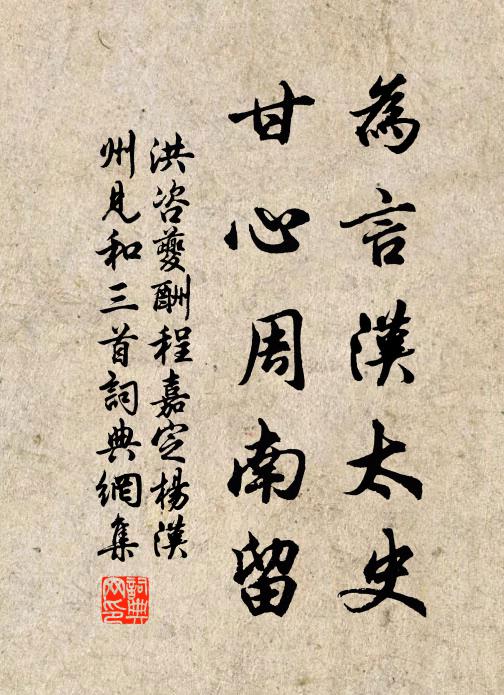 為言漢太史
甘心周南留
洪咨夔酬程嘉定楊漢
州見和三首詞典網集
詞典網印